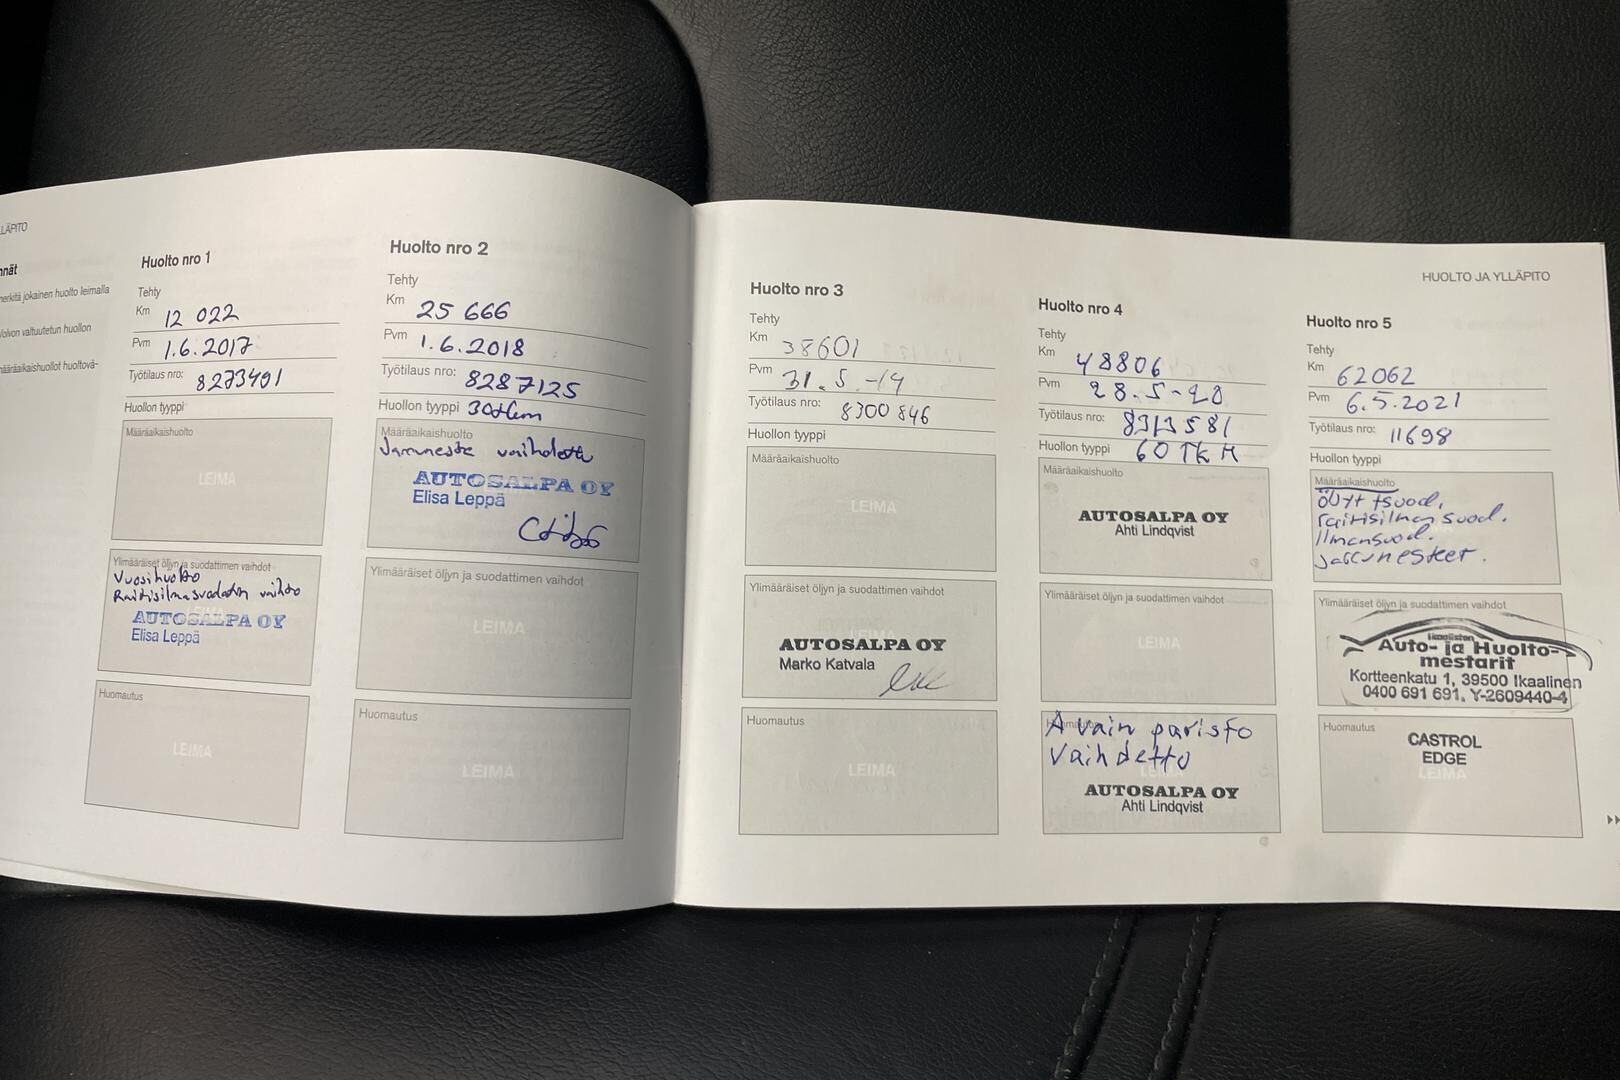 LLÄPITO
nnät
nerkitä jokainen huolto leimalla
Volvon valtuutetun huollon
nääräaikaishuollot huoltovä-
Huolto nro 1
Tehty
Km 12 022
Pvm 1.6.2017
Työtilaus nro: 8273491
Huollon tyyppi
Määräaikaishuolto
LEIMA
Ylimääräiset öljyn ja suodattimen vaihdot
Vuosihuolto
Raitisilmasuodatin vaihto
LEIMA
AUTOSALPA OY
Elisa Leppä
Huomautus
LEIMA
Huolto nro 2
Tehty
Km 25 666
Pvm 1.6.2018
Työtilaus nro: 8287125
Huollon tyyppi 30tkm
Määräaikaishuolto
Jarruneste vaihdettu
AUTOSALPA OY
Elisa Leppä
Ylimääräiset öljyn ja suodattimen vaihdot
LEIMA
Huomautus
LEIMA
HUOLTO JA YLLÄPITO
Huolto nro 3
Tehty
Km 38601
Pvm 31.5.-19
Työtilaus nro: 8300846
Huollon tyyppi
Määräaikaishuolto
LEIMA
Ylimääräiset öljyn ja suodattimen vaihdot
AUTOSALPA OY
Marko Katvala
Huomautus
LEIMA
Huolto nro 4
Tehty
Km 48806
Pvm 28.5-20
Työtilaus nro: 8313581
Huollon tyyppi 60TKM
Määräaikaishuolto
AUTOSALPA OY
Ahti Lindqvist
Ylimääräiset öljyn ja suodattimen vaihdot
LEIMA
Huomautus
Avain paristo
vaihdettu
LEIMA
AUTOSALPA OY
Ahti Lindqvist
Huolto nro 5
Tehty
Km 62062
Pvm 6.5.2021
Työtilaus nro: 11698
Huollon tyyppi
Määräaikaishuolto
Öljyt +suod,
raitisilman suod.
Ilmansuod.
jarrunesteet.
Ylimääräiset öljyn ja suodattimen vaihdot
Ikaalisten
Auto- ja Huolto-
mestarit
Kortteenkatu 1, 39500 Ikaalinen
0400 691 691, Y-2609440-4
Huomautus
CASTROL
EDGE
LEIMA